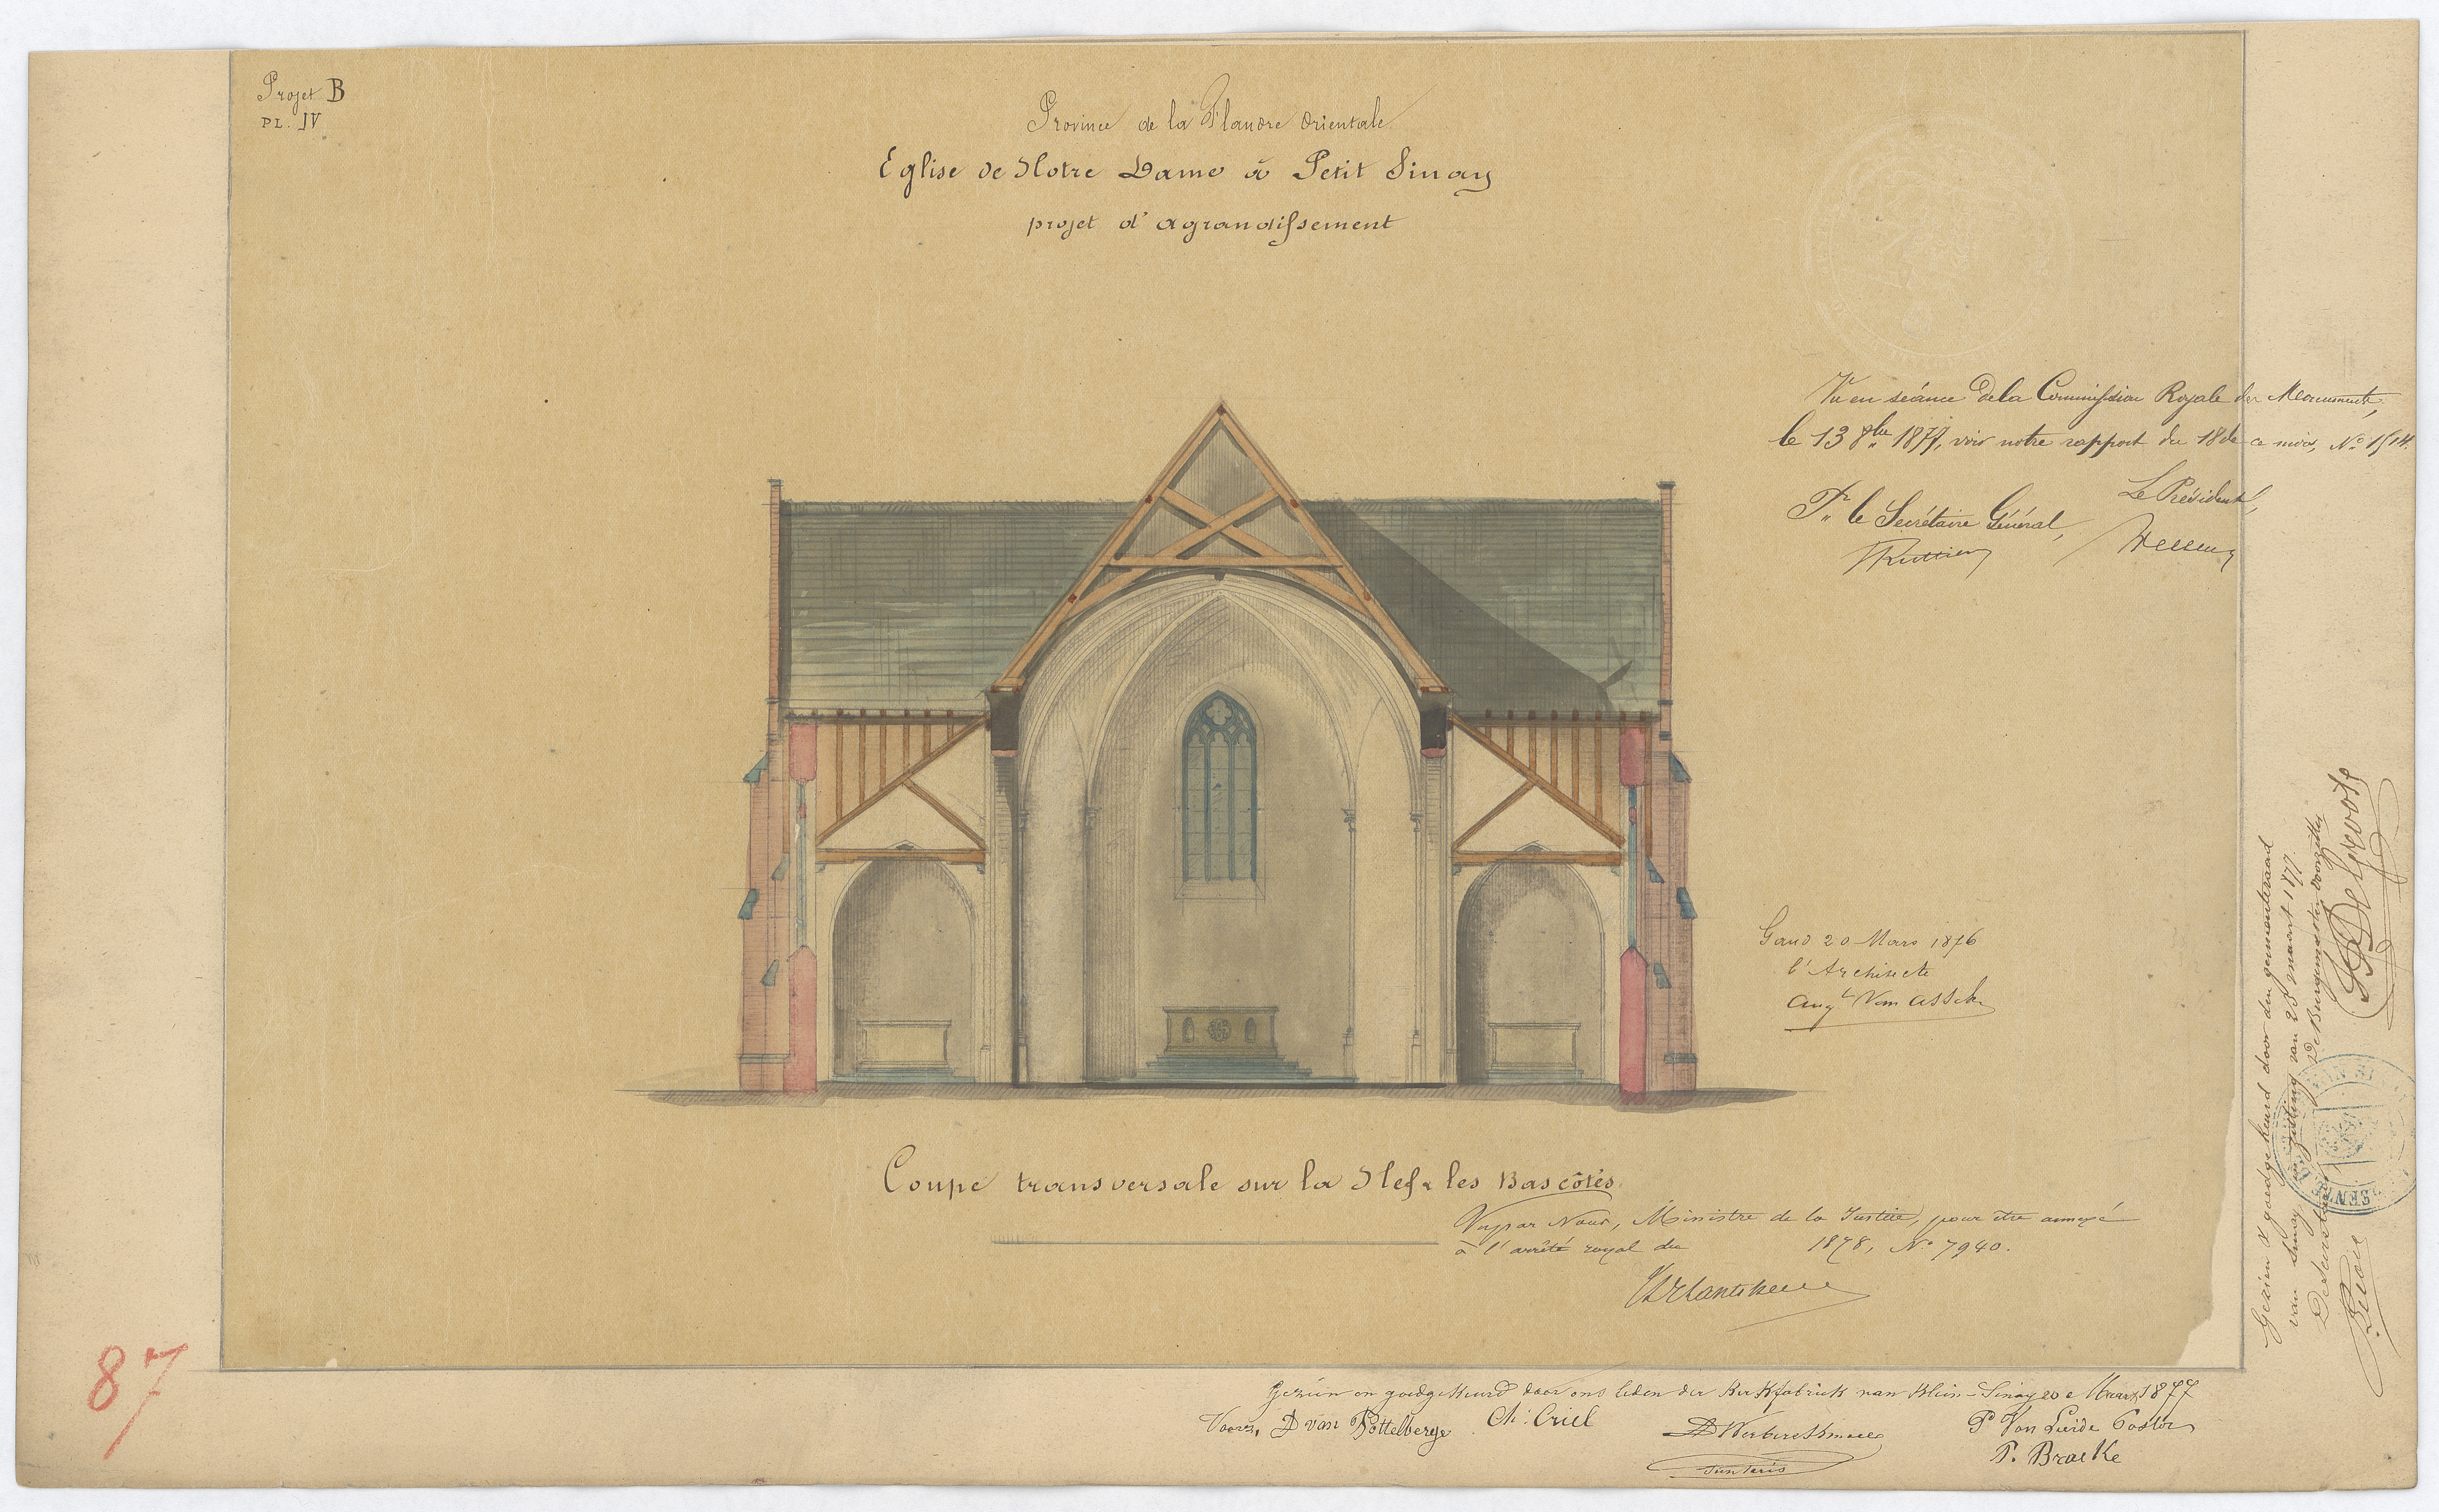 Projet B
PL. IV
Province de la Flandre Orientale
Église de Notre Dame à Petit Sinay
projet d'agrandissement
Vu en séance de la Commission Royale des Monuments,
le 13 8bre 1877, voir notre rapport du 18 de ce mois, No 1514.
Le Président,
Pr le Secrétaire Général,
Gand 20 Mars 1876
l'Architecte
Augte Van Assche
Coupe transversale sur la Nef & les Bas côtés
Vu par Nous, Ministre de la Justice, pour être annexé
à l'arrêté royal du 1878, No 7940.
Gezien & goedgekeurd door den gemeenteraad
van Sinay in zitting van 28 maart 1877.
De Burgemeester voorzitter
De Secretaris
DeGroote
87
Gezien en goedgekeurd door ons leden der Kerkfabriek van Klein-Sinay 20 e Maart 1877
Voorz. D van Pottelberge Ch: Criel
P Van Lierde Pastor
P. Braeke